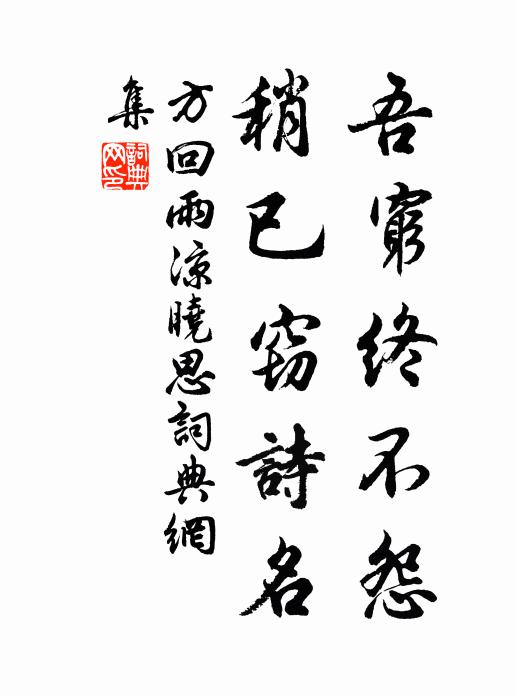 吾窮終不怨
稍已窃詩名
方回雨涼曉思詞典網
集
詞典网印